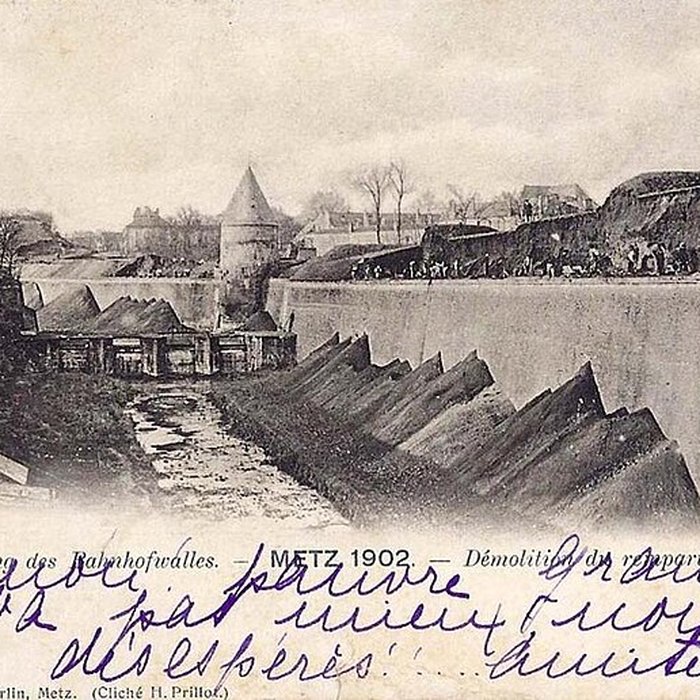 des Bahnhofwalles. — METZ 1902. — Démolition du rempar
pauvre Gran
va pas mieux & nou
désespérés!.... amiti
rlin, Metz. (Cliché H. Prillot.)